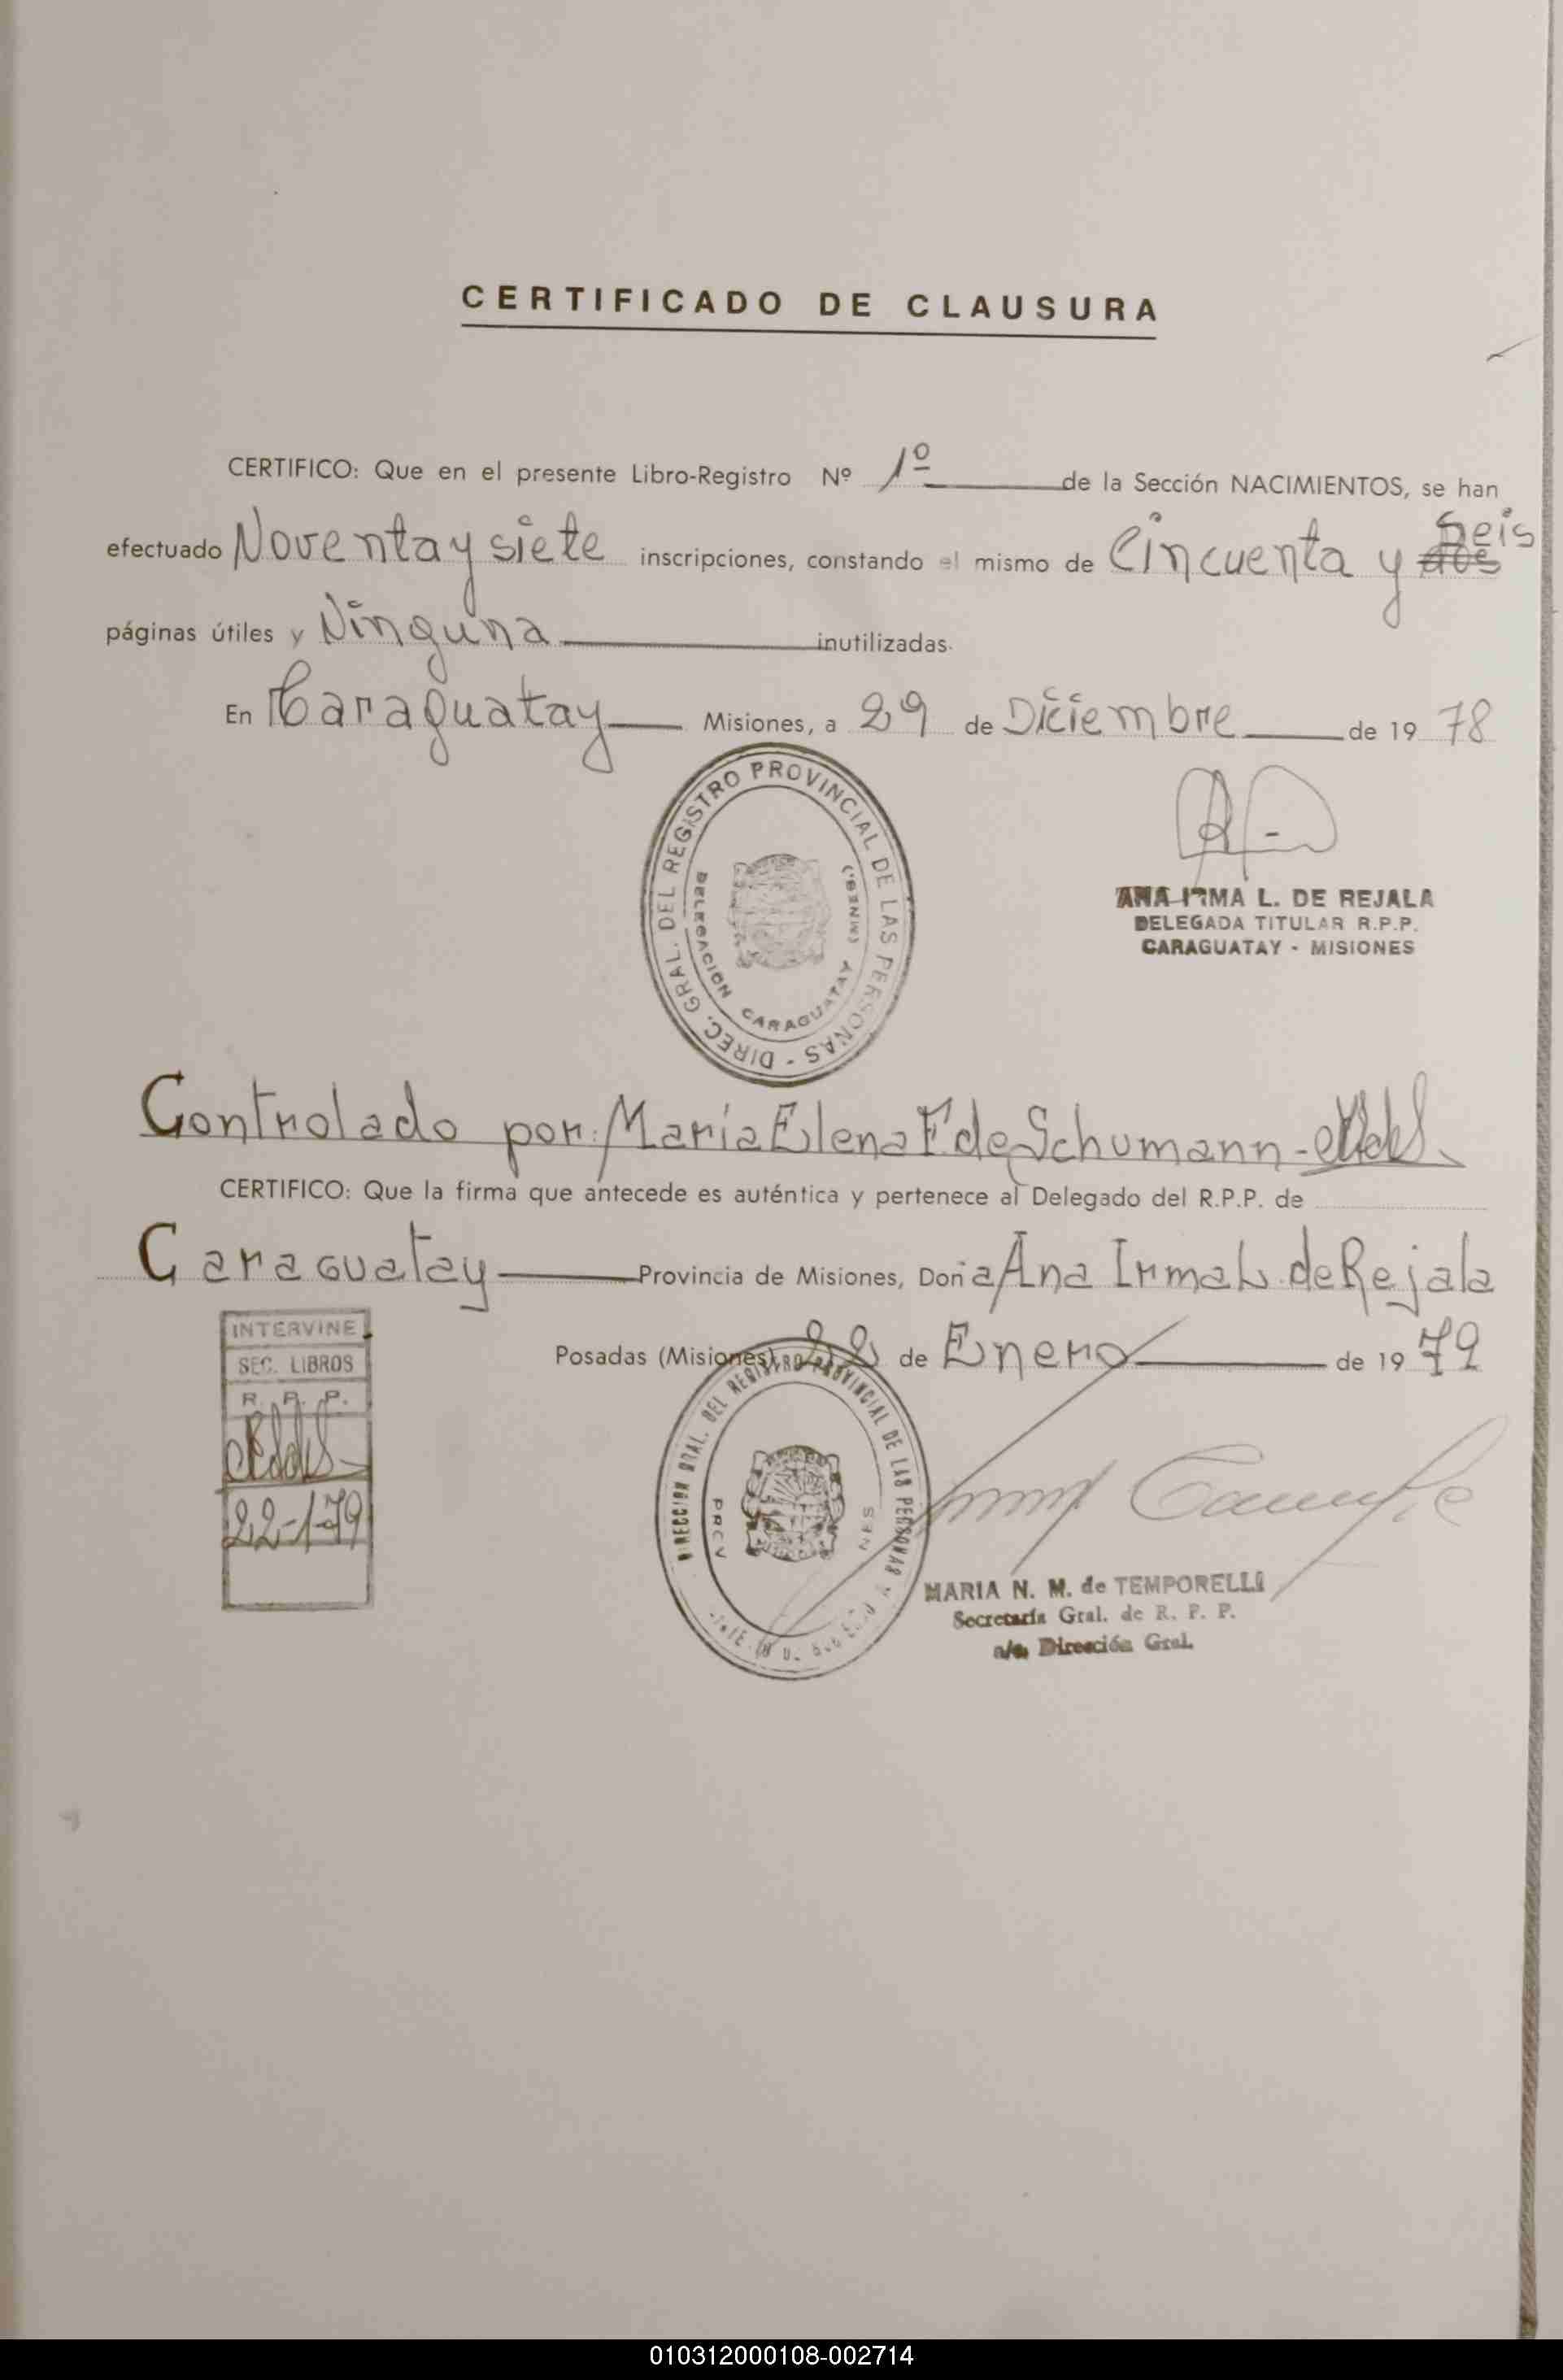 CERTIFICADO DE CLAUSURA
CERTIFICO: Que en el presente Libro-Registro Nº 1º de la Sección NACIMIENTOS, se han
efectuado Noventa y siete inscripciones, constando el mismo de Cincuenta y dos seis
páginas útiles y Ninguna inutilizadas.
En Caraguatay Misiones, a 29 de Diciembre de 1978
DIREC. GRAL. DEL REGISTRO PROVINCIAL DE LAS PERSONAS -
DELEGACION CARAGUATAY (MNES.)
ANA IRMA L. DE REJALA
DELEGADA TITULAR R.P.P.
CARAGUATAY - MISIONES
Controlado por: María Elena F de Schumann -
CERTIFICO: Que la firma que antecede es auténtica y pertenece al Delegado del R.P.P. de
Caraguatay Provincia de Misiones, Doña Ana Irma L. de Rejala
Posadas (Misiones), 22 de Enero de 1979
INTERVINE
SEC. LIBROS
R. P. P.
22-1-79
DIRECCION GRAL. DEL REGISTRO PROVINCIAL DE LAS PERSONAS
MARIA N. M. de TEMPORELLI
Secretaría Gral. de R. P. P.
a/c. Dirección Gral.
010312000108-002714